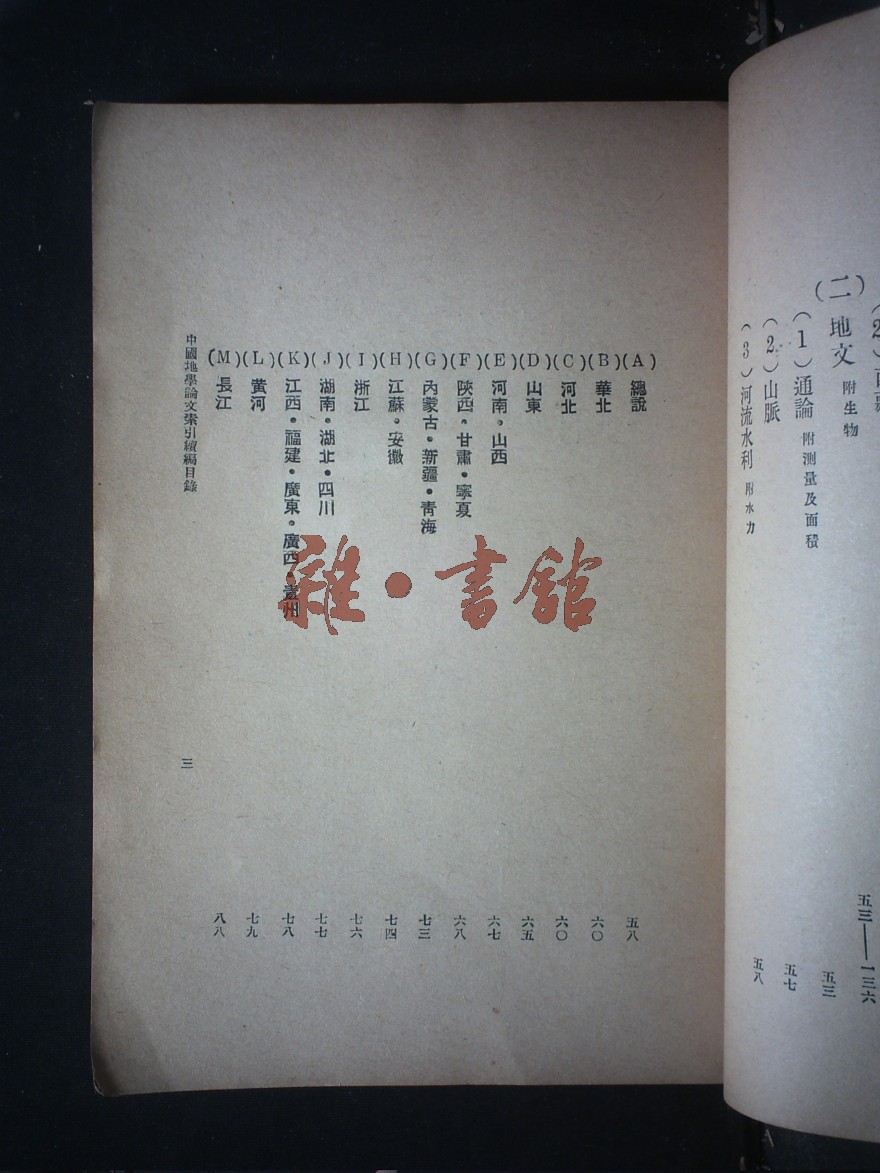 (二)地文 附生物 五三——一三六
(1)通論 附測量及面積 五三
(2)山脈 五七
(3)河流水利 附水力 五八
(A)總說 五八
(B)華北 六〇
(C)河北 六〇
(D)山東 六五
(E)河南・山西 六七
(F)陝西・甘肅・寧夏 六八
(G)內蒙古・新疆・青海 七三
(H)江蘇・安徽 七四
(I)浙江 七六
(J)湖南・湖北・四川 七七
(K)江西・福建・廣東・廣西・貴州 七八
(L)黃河 七九
(M)長江 八八
中國地學論文索引續編目錄 三
雜・書館